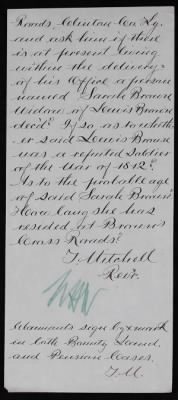 Roads, Clinton Co. Ky.
and ask him if there
is at present living
within the delivery
of his Office a person
named Sarah Brown
Widow of Lewis Brown
decd? If so, as to wheth-
er said Lewis Brown
was a reputed Soldier
of the War of 1812?
As to the probable age
of said Sarah Brown?
How long she has
resided at Brown's
Cross Roads?
T. Mitchell
Revr.
Claimants sign by x mark
in both Bounty Land,
and Pension Cases.
T.M.